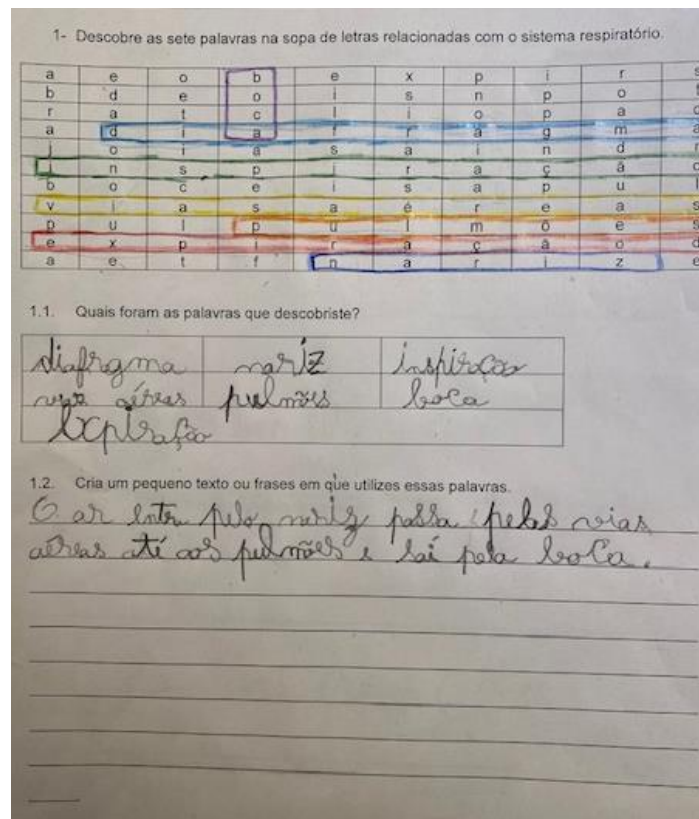 1- Descobre as sete palavras na sopa de letras relacionadas com o sistema respiratório.
a e o b e x p i r s
b d e o i s n p o
r a t c l i o p a c
a d i a f r a g m a
j o i a s a i n d r
i n s p i r a ç ã o
b o c e i s a p u
v i a s a é r e a s
p u l p u l m õ e s
e x p i r a ç ã o d
a e t f n a r i z e
1.1. Quais foram as palavras que descobriste?
diafragma nariz inspiração
vias aéreas pulmões boca
Expiração
1.2. Cria um pequeno texto ou frases em que utilizes essas palavras.
O ar entra pelo nariz passa pelas vias
aéreas até aos pulmões e sai pela boca.